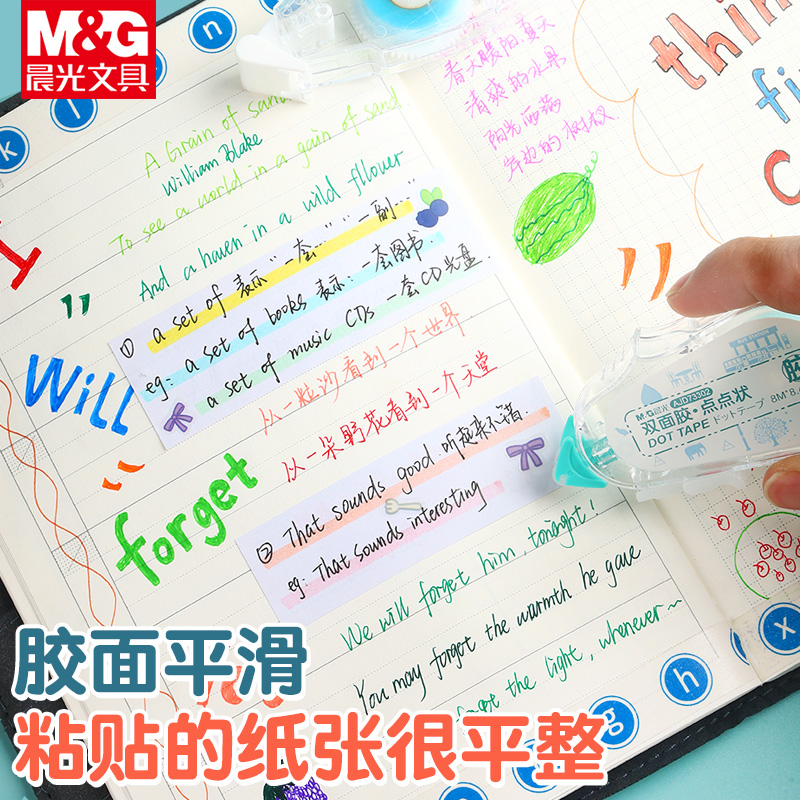 M&G
晨光文具
n
l
k
I
A Grain of sand
William Blake
To see a world in a gain of sand
And a haven in a wild fllower
① a set of 表示“一套…”“一副…”
eg: a set of books 表示: 一套图书.
a set of music CDs 一套CD光盘
从一粒沙看到一个世界.
从一朵野花看到一个天堂
② That sounds good 听起来不错.
eg: That sounds interesting
Will
forget
We will forget him, tonight!
You may forget the warmth he gave
the light, whenever~
春天暖阳,夏天
清爽的水果
阳光西落
岸边的树杈
thin
fi
C
M&G晨光 AJD75302
双面胶·点点状
DOT TAPE ドットテープ 8M*8
胶
x
h
g
胶面平滑
粘贴的纸张很平整